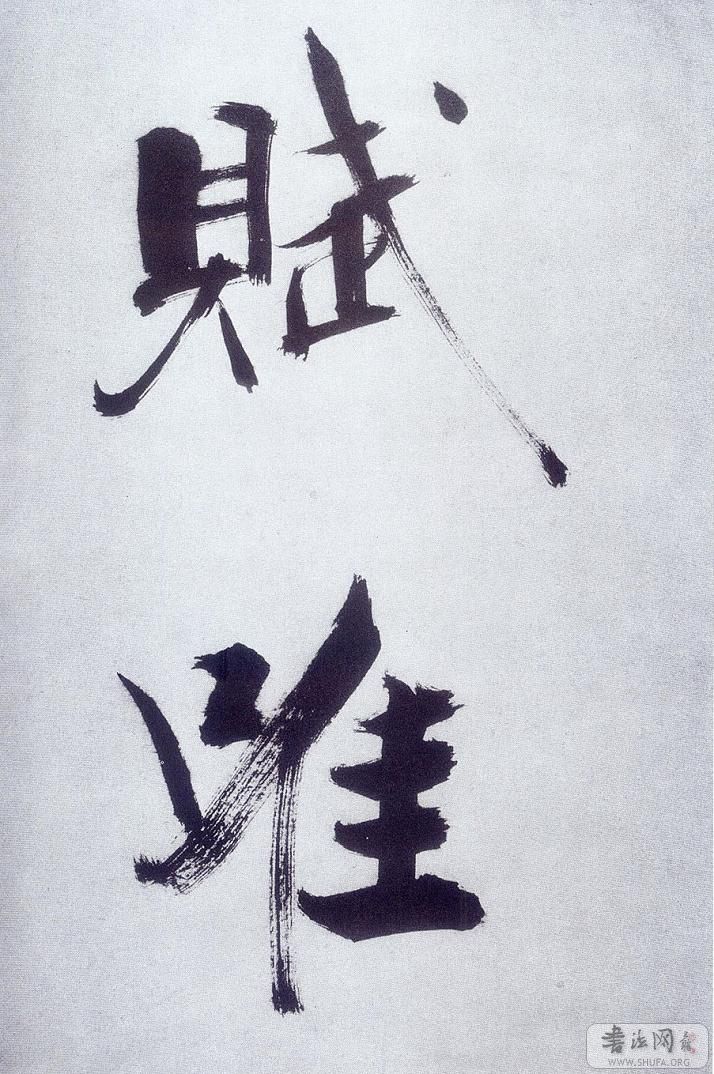 賦
唯
書法网
WWW.SHUFA.ORG